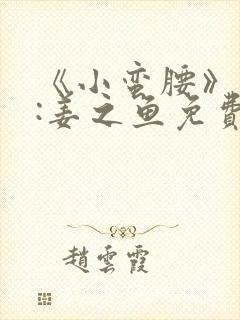 《小蛮腰》
:姜之鱼免費
趙雲霞